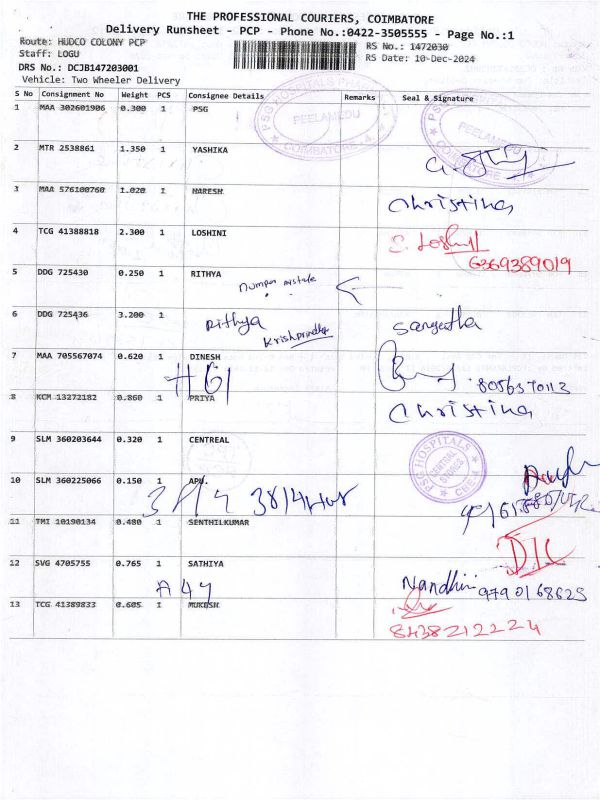 THE PROFESSIONAL COURIERS, COIMBATORE
Delivery Runsheet - PCP - Phone No.:0422-3505555 - Page No.:1
Route: HUDCO COLONY PCP
RS No.: 1472030
Staff: LOGU
RS Date: 10-Dec-2024
DRS No.: DCJB147203001
Vehicle: Two Wheeler Delivery
S No Consignment No Weight PCS Consignee Details Remarks Seal & Signature
1 MAA 302601906 0.300 1 PSG
PSG HOSPITALS
PEELAMEDU
COIMBATORE - 4.
PEELAMEDU
COIMBATORE - 4.
2 MTR 2538861 1.350 1 YASHIKA
3 MAA 576100760 1.020 1 HARESH
Christina
4 TCG 41388818 2.300 1 LOSHINI
S. Loshini
6369389019
5 DDG 725430 0.250 1 RITHYA
Number mistake
6 DDG 725436 3.200 1
Rithya
Krishpriya
Sangeetha
7 MAA 705567074 0.620 1 DINESH
HG1
8056570113
8 KCM 13272182 0.860 1 PRIYA
Christina
9 SLM 360203644 0.320 1 CENTREAL
PSG HOSPITALS
CENTRAL
STORES
CBE-4
10 SLM 360225066 0.150 1 APU.
11 TMI 10190134 0.480 1 SENTHILKUMAR
12 SVG 4705755 0.765 1 SATHIYA
A 44
Nandhini 9790168625
13 TCG 41389833 0.605 1 MUKESH
8438212224